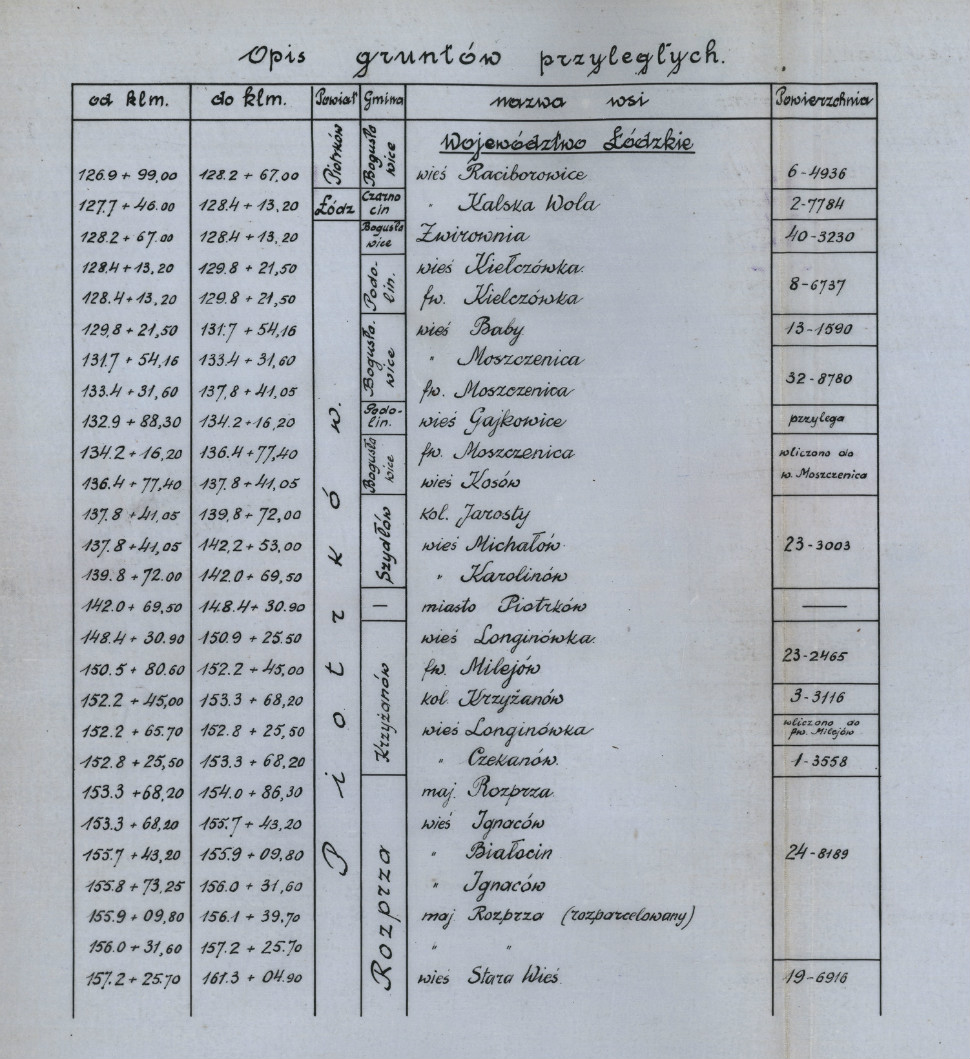 Opis gruntów przyległych.
od klm. do klm. Powiat Gmina nazwa wsi Powierzchnia
Województwo Łódzkie
126.9 + 99,00 128.2 + 67.00 Piotrków Bogusławice wieś Raciborowice 6-4936
127.7 + 46.00 128.4 + 13,20 Łódz Czarnocin " Kalska Wola 2-7784
128.2 + 67.00 128.4 + 13,20 Piotrków. Bogusławice Żwirownia 40-3230
128.4 + 13,20 129.8 + 21,50 Podolin. wieś Kiełczówka 8-6737
128.4 + 13,20 129.8 + 21,50 fw. Kielczówka
129,8 + 21,50 131.7 + 54,16 Bogusławice wieś Baby 13-1590
131.7 + 54,16 133.4 + 31,60 " Moszczenica 32-8780
133.4 + 31,60 137,8 + 41,05 fw. Moszczenica
132.9 + 88,30 134.2 + 16,20 Podolin. wieś Gajkowice przylega
134.2 + 16,20 136.4 + 77,40 Bogusławice fw. Moszczenica wliczono do
136.4 + 77,40 137.8 + 41,05 wieś Kosów w. Moszczenica
137.8 + 41,05 139,8 + 72,00 Szydłów kol. Jarosty 23-3003
137.8 + 41,05 142,2 + 53,00 wieś Michałów
139.8 + 72.00 142.0 + 69,50 " Karolinów
142.0 + 69,50 148.4 + 30.90 — miasto Piotrków —
148.4 + 30.90 150.9 + 25.50 Krzyżanów wieś Longinówka 23-2465
150.5 + 80.60 152.2 + 45,00 fw. Milejów
152.2 + 45,00 153.3 + 68,20 kol. Krzyżanów 3-3116
152.2 + 65.70 152.8 + 25,50 wieś Longinówka wliczono do fw. Milejów
152.8 + 25,50 153.3 + 68,20 " Czekanów. 1-3558
153.3 + 68,20 154.0 + 86,30 Rozprza maj. Rozprza 24-8189
153.3 + 68,20 155.7 + 43,20 wieś Ignaców
155.7 + 43,20 155.9 + 09,80 " Białocin
155.8 + 73,25 156.0 + 31,60 " Ignaców
155.9 + 09,80 156.1 + 39,70 maj Rozprza (rozparcelowany)
156.0 + 31,60 157.2 + 25.70 " "
157.2 + 25.70 161.3 + 04.90 wieś Stara Wieś 19-6916